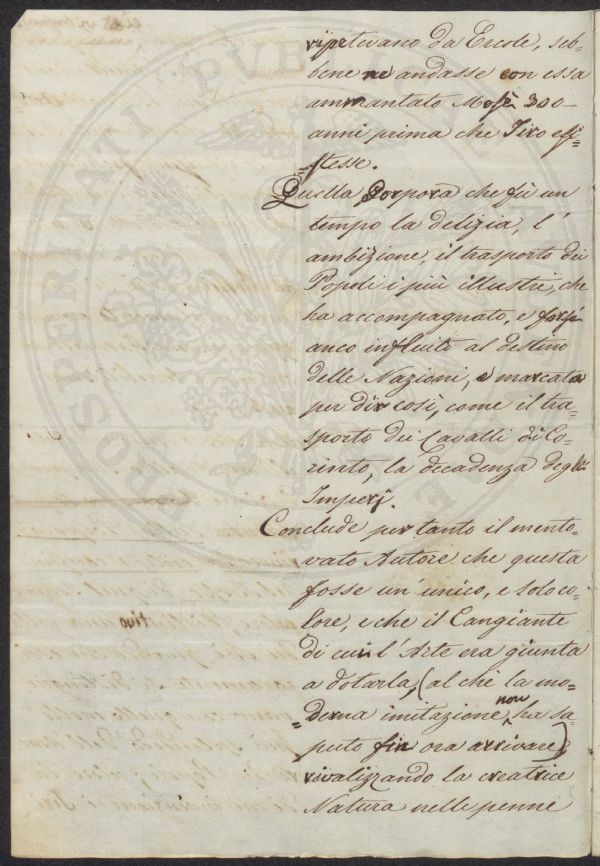 ripetevano da Ercole, seb-
bene ne andasse con essa
ammantato Mosè 300
anni prima che Tiro esi-
stesse.
Quella Porpora che fù un
tempo la delizia, l'
ambizione, il trasporto dei
Popoli i più illustri, che
ha accompagnato, e forse
anco influito al destino
delle Nazioni, e marcata
per dir così, come il tra-
sporto dei Cavalli di Co-
rinto, la decadenza degli
Imperj.
Conclude per tanto il mento-
vato Autore che questa
fosse un'unico, e solo co-
lore, e che il Cangiante
di cui l'Arte era giunta
a dotarla, (al chè la mo-
derna imitazione non ha sa-
puto fin ora arrivare)
rivalizzando la creatrice
Natura nelle penne
PROSPERITATI PUBLICAE